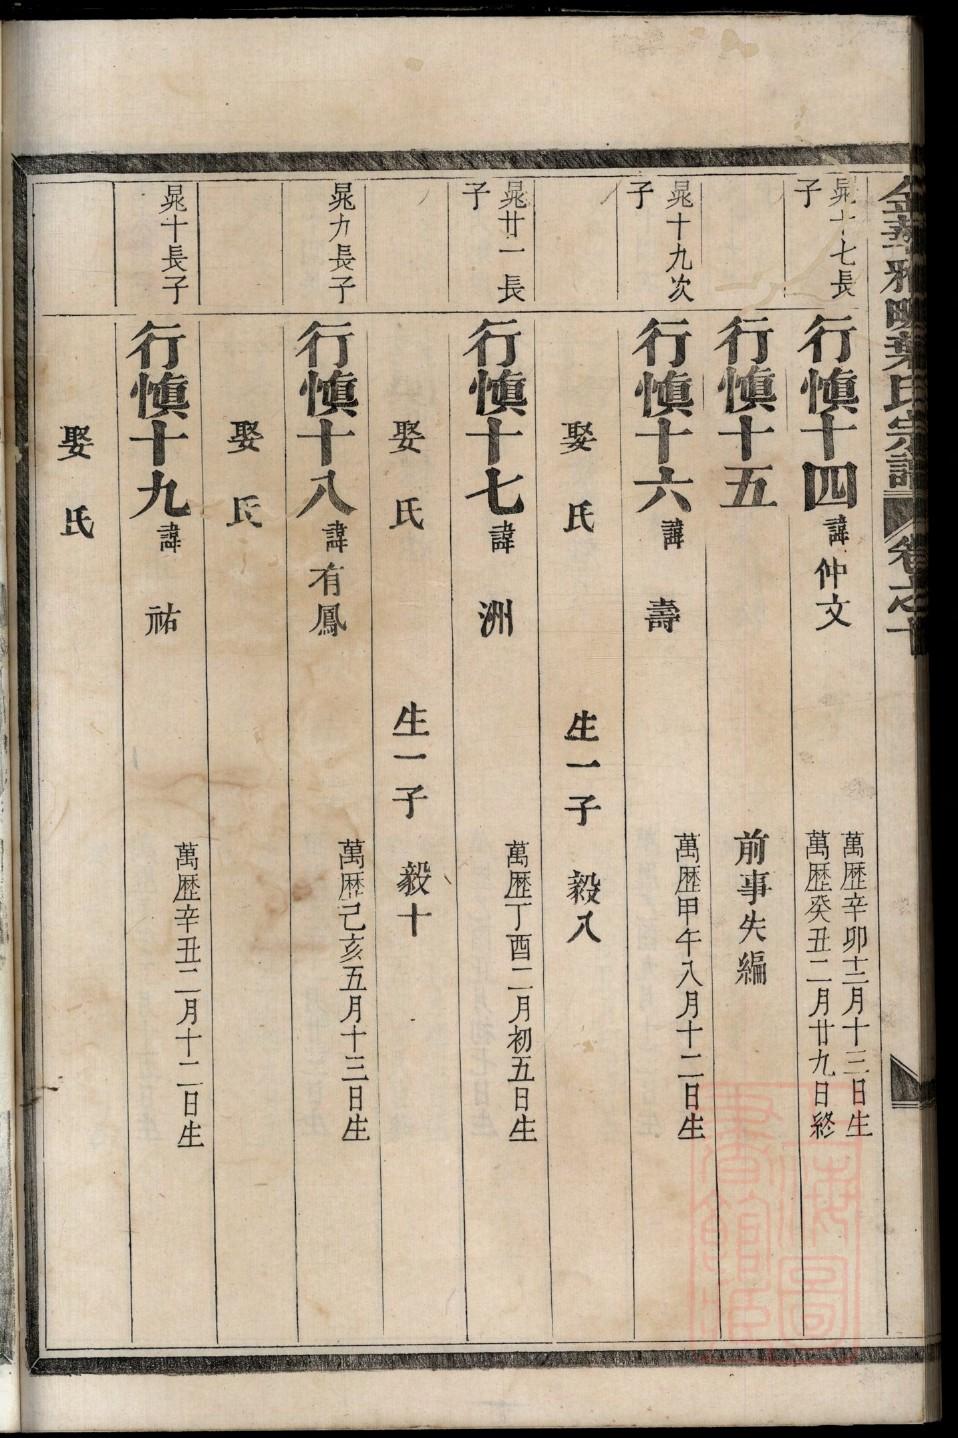 金華雅畈葉氏宗譜 卷之十
晁十七長子
行慎十四 諱仲文 萬歷辛卯十二月十三日生
萬歷癸丑二月廿九日終
行慎十五 前事失編
晁十九次子
行慎十六 諱壽 萬歷甲午八月十二日生
娶氏 生一子 毅八
晁廿一長子
行慎十七 諱洲 萬歷丁酉二月初五日生
娶氏 生一子 毅十
晁九長子
行慎十八 諱有鳳 萬歷己亥五月十三日生
娶氏
晁十長子
行慎十九 諱祐 萬歷辛丑二月十二日生
娶氏